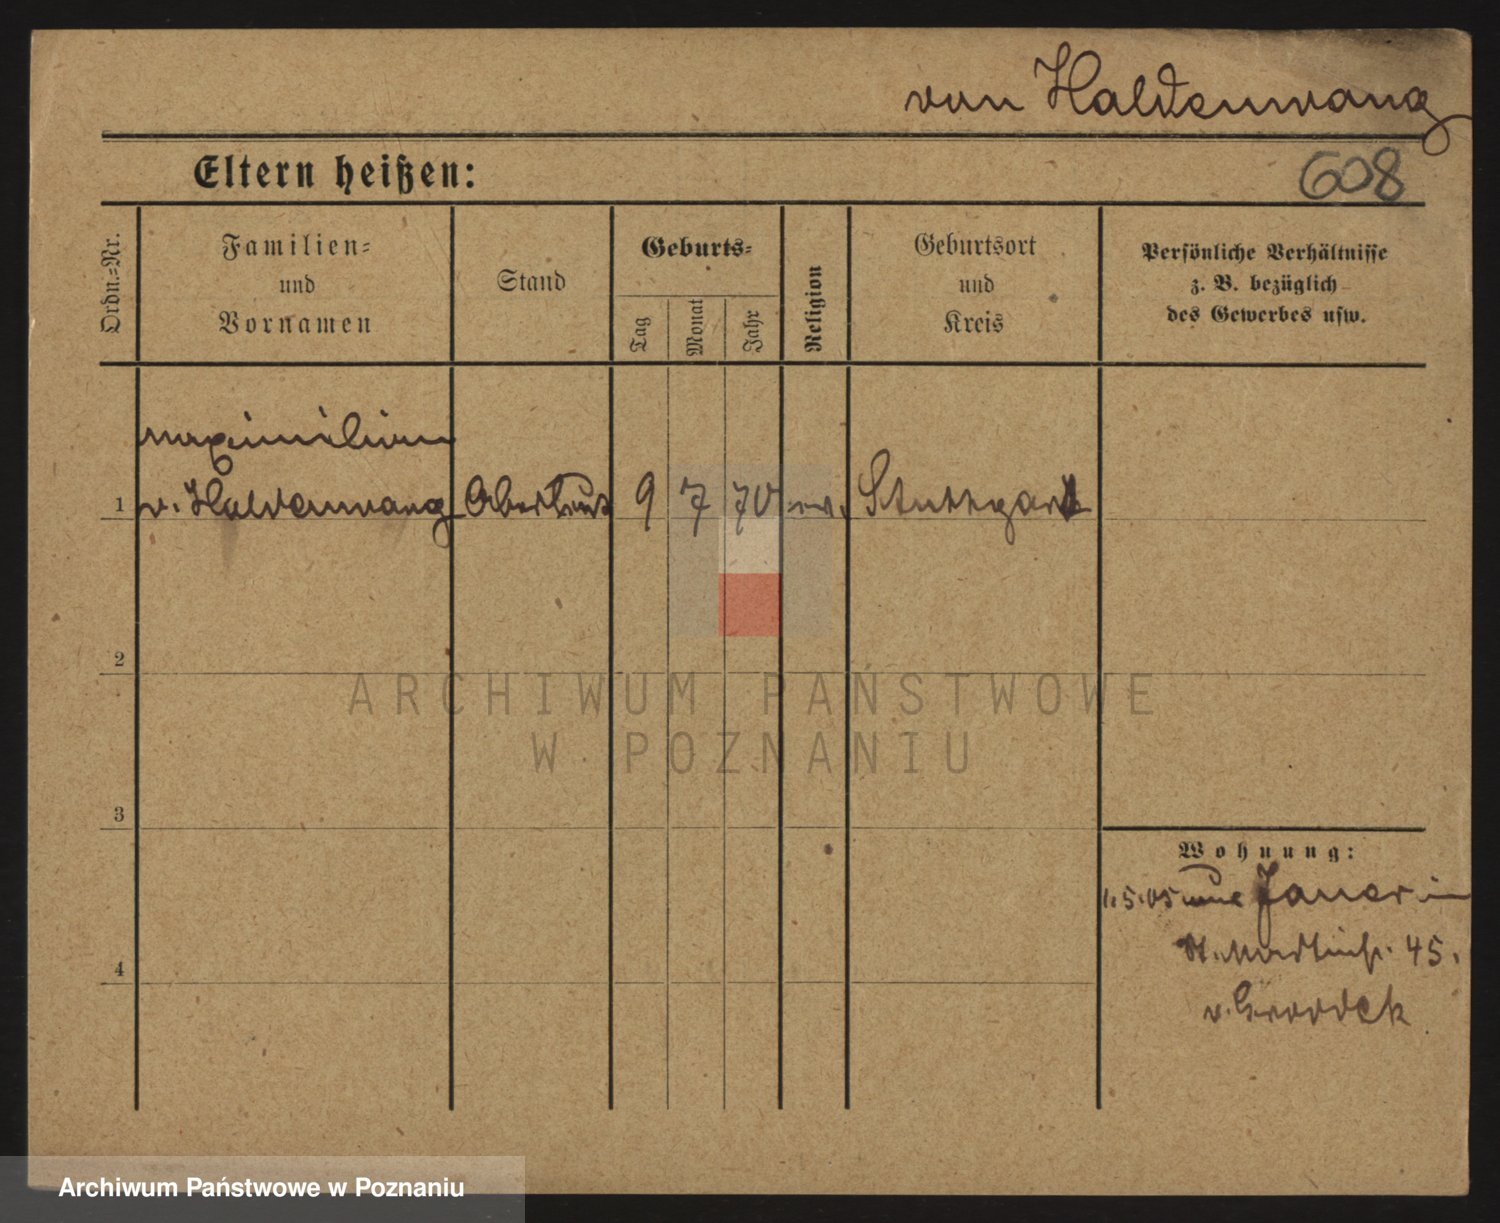 von Haldenwang
Eltern heißen:
608
Ordn.=Nr.
Familien=
und
Vornamen
Stand
Geburts=
Tag
Monat
Jahr
Religion
Geburtsort
und
Kreis
Persönliche Verhältnisse
z. B. bezüglich
des Gewerbes usw.
Maximilian
1 v. Haldenwang Oberleut 9 7 70 ev. Stuttgart
2
3
4
Wohnung:
1.5.05 Jauer in
St. Martinstr. 45.
v. Grodeck
ARCHIWUM PAŃSTWOWE
W POZNANIU
Archiwum Państwowe w Poznaniu